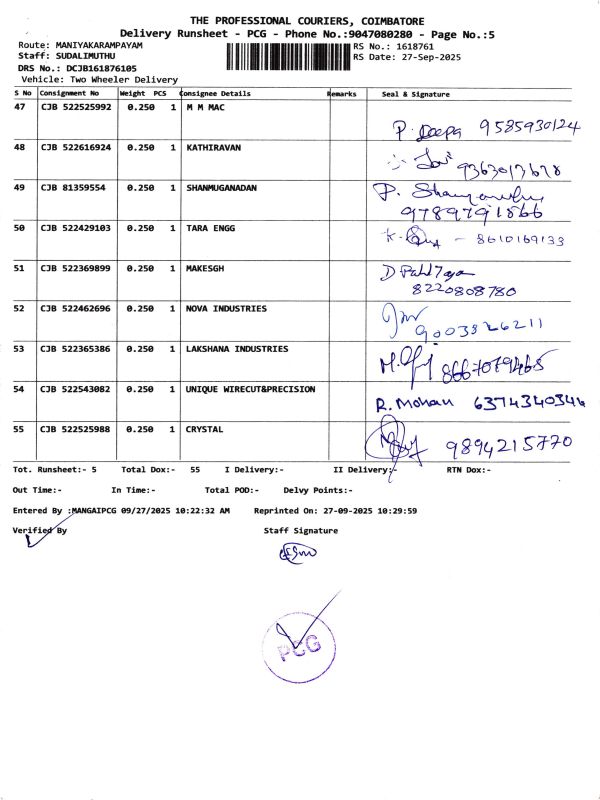 THE PROFESSIONAL COURIERS, COIMBATORE
Delivery Runsheet - PCG - Phone No.:9047080280 - Page No.:5
Route: MANIYAKARAMPAYAM RS No.: 1618761
Staff: SUDALIMUTHU RS Date: 27-Sep-2025
DRS No.: DCJB161876105
Vehicle: Two Wheeler Delivery
S No Consignment No Weight PCS Consignee Details Remarks Seal & Signature
47 CJB 522525992 0.250 1 M M MAC
P. Deepa 9585930124
48 CJB 522616924 0.250 1 KATHIRAVAN
9363017678
49 CJB 81359554 0.250 1 SHANMUGANADAN
P.
9789791866
50 CJB 522429103 0.250 1 TARA ENGG
K. - 8610169133
51 CJB 522369899 0.250 1 MAKESGH
D
8220808780
52 CJB 522462696 0.250 1 NOVA INDUSTRIES
9003826211
53 CJB 522365386 0.250 1 LAKSHANA INDUSTRIES
54 CJB 522543082 0.250 1 UNIQUE WIRECUT&PRECISION
R. Mohan 6374340346
55 CJB 522525988 0.250 1 CRYSTAL
9894215770
Tot. Runsheet:- 5 Total Dox:- 55 I Delivery:- II Delivery:- RTN Dox:-
Out Time:- In Time:- Total POD:- Delvy Points:-
Entered By :MANGAIPCG 09/27/2025 10:22:32 AM Reprinted On: 27-09-2025 10:29:59
Verified By Staff Signature
PCG